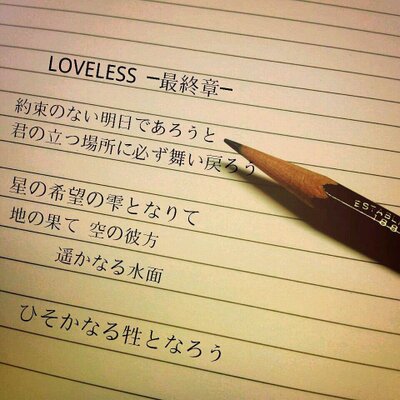 LOVELESS ー最終章ー
約束のない明日であろうと
君の立つ場所に必ず舞い戻ろう
星の希望の雫となりて
地の果て 空の彼方
遥かなる水面
ひそかなる牲となろう
ESTABL
188